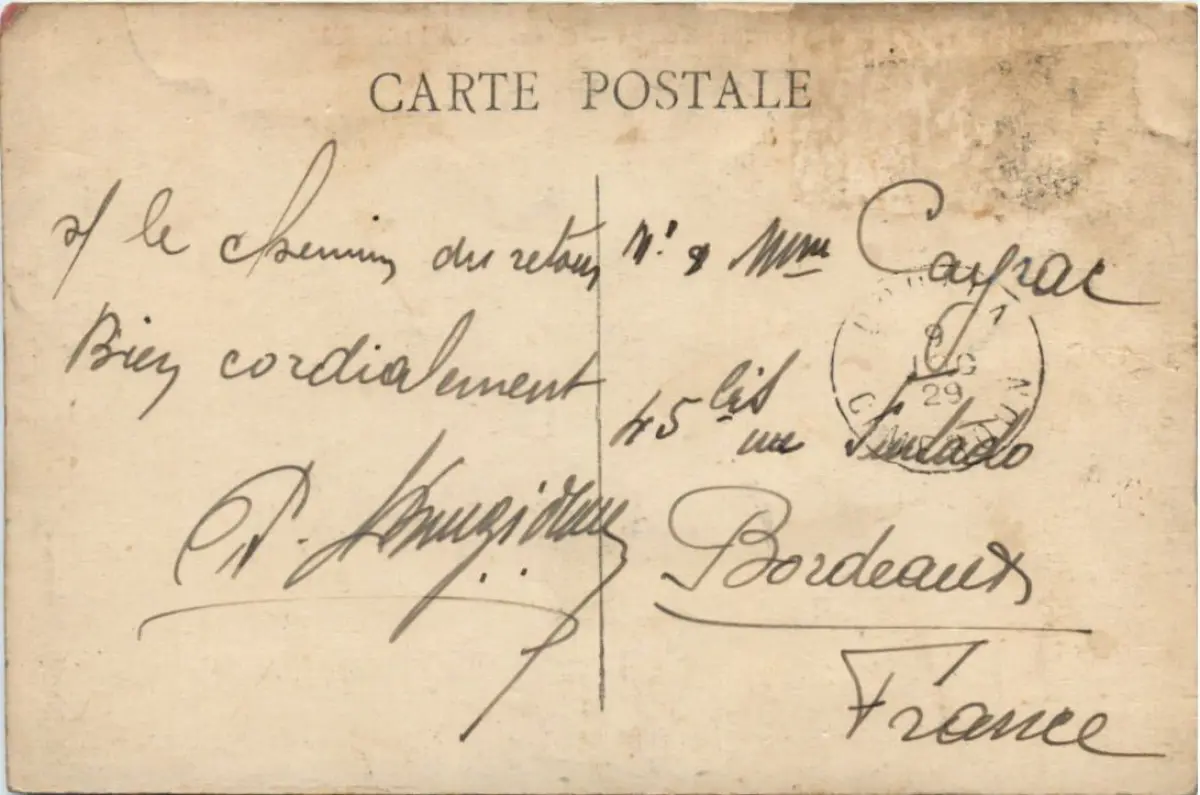 CARTE POSTALE
s/ le chemin du retour
Bien cordialement
P.
Mr & Mme Cayrac
45 bis rue
Bordeaux
France
9
29